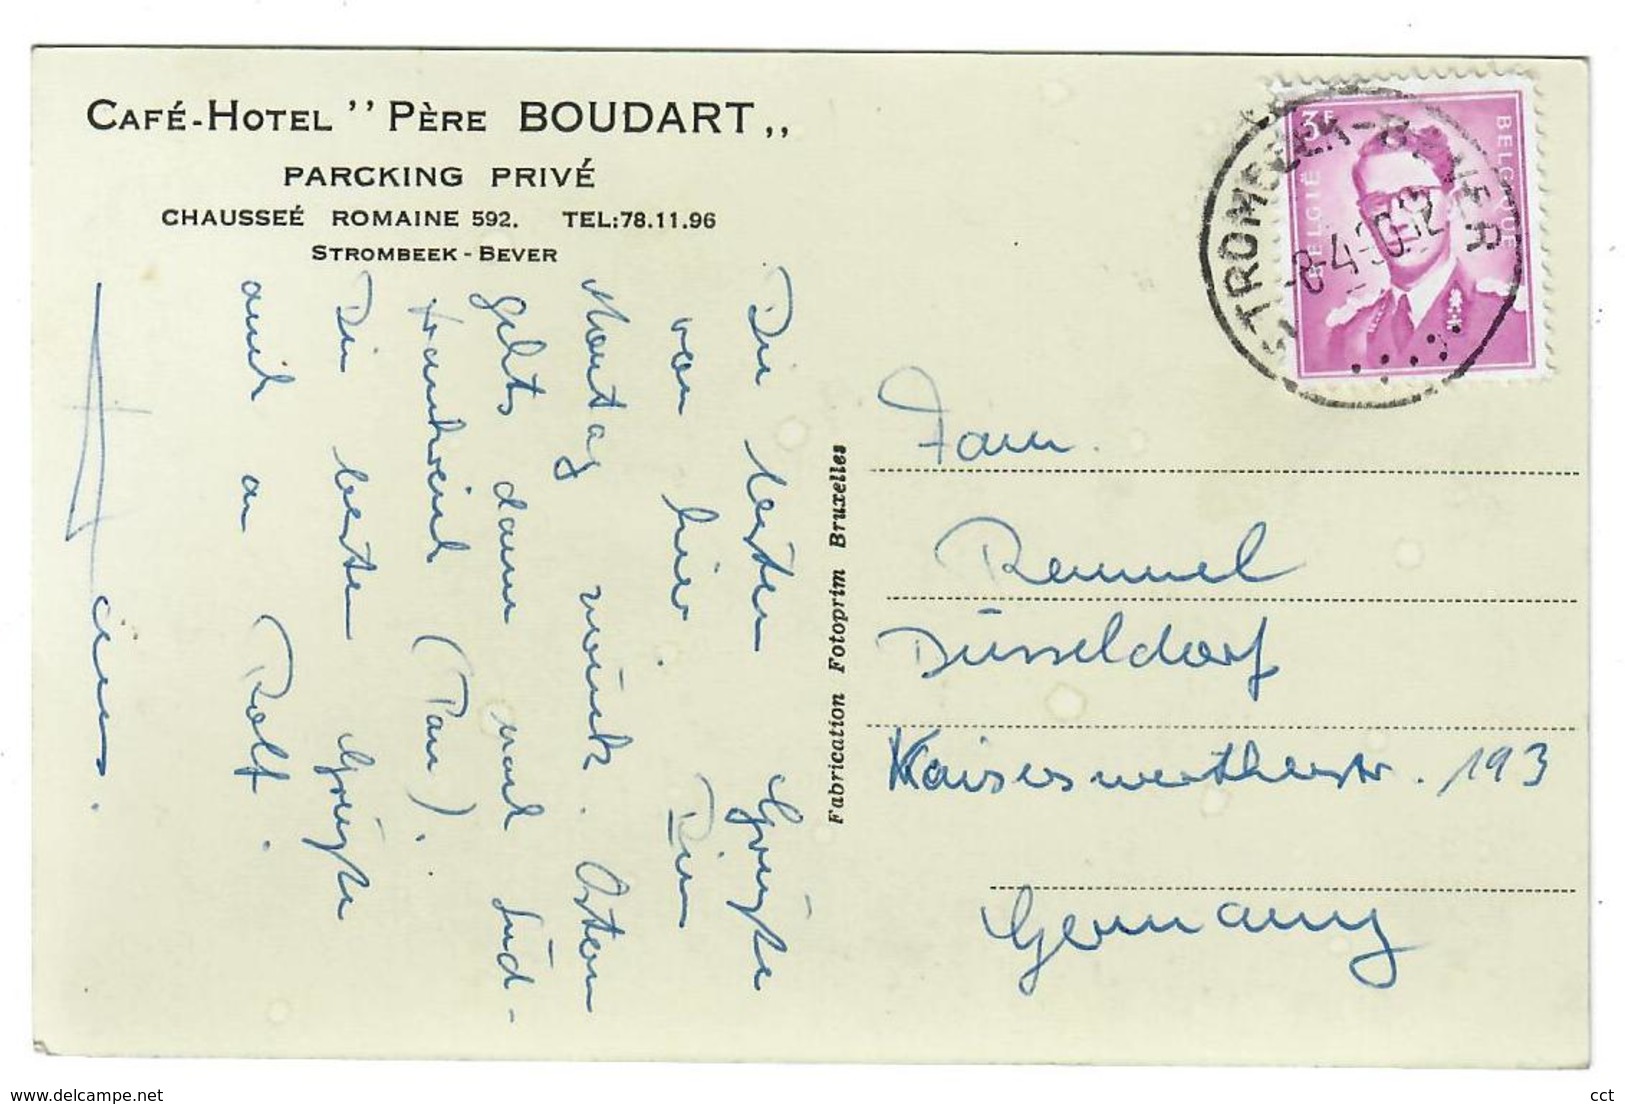 CAFÉ-HOTEL '' PÈRE BOUDART ,,
PARCKING PRIVÉ
CHAUSSEÉ ROMAINE 592. TEL:78.11.96
STROMBEEK - BEVER
Die besten Grüße
von hier. Bin
Montag zurück. Ostern
gehts dann nach Süd-
frankreich (Pau).
Dir beste Grüße
auch an Rolf.
Fabrication Fotoprim Bruxelles
3F
BELGIË
BELGIQUE
STROMBEEK-BEVER
Fam.
Remmel
Düsseldorf
Kaiserswertherstr. 193
Germany
www.delcampe.net
cct